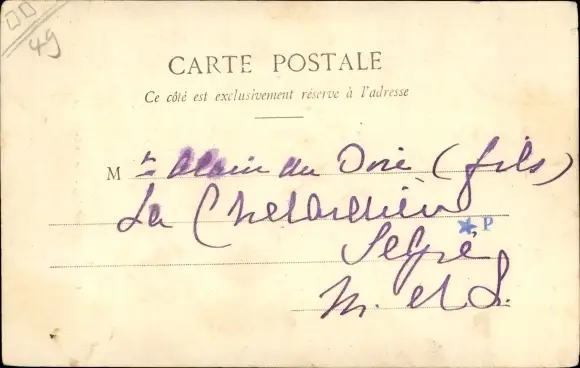 49
CARTE POSTALE
Ce côté est exclusivement réservé à l'adresse
M r Alain du Orié (fils)
La
Segré
P
M. et L.